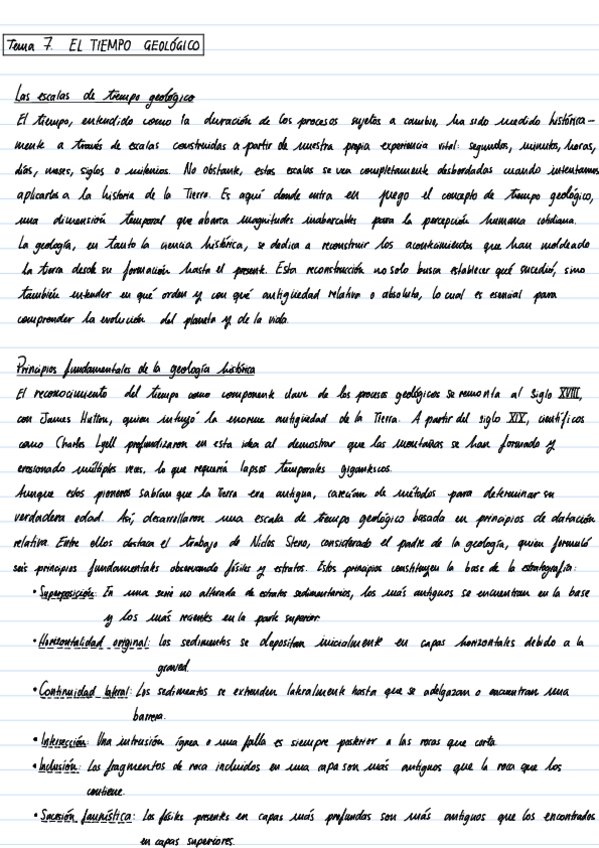 Tema 7. EL TIEMPO GEOLÓGICO
Las escalas de tiempo geológico
El tiempo, entendido como la duración de los procesos sujetos a cambio, ha sido medido histórica-
mente a través de escalas construidas a partir de nuestra propia experiencia vital: segundos, minutos, horas,
días, meses, siglos o milenios. No obstante, estas escalas se ven completamente desbordadas cuando intentamos
aplicarlas a la historia de la Tierra. Es aquí donde entra en juego el concepto de tiempo geológico,
una dimensión temporal que abarca magnitudes inabarcables para la percepción humana cotidiana.
La geología, en tanto la ciencia histórica, se dedica a reconstruir los acontecimientos que han moldeado
la tierra desde su formación hasta el presente. Esta reconstrucción no solo busca establecer qué sucedió, sino
también entender en qué orden y con qué antigüedad relativa o absoluta, lo cual es esencial para
comprender la evolución del planeta y de la vida.
Principios fundamentales de la geología histórica
El reconocimiento del tiempo como componente clave de los procesos geológicos se remonta al siglo XVIII,
con James Hutton, quien intuyó la enorme antigüedad de la Tierra. A partir del siglo XIX, científicos
como Charles Lyell profundizaron en esta idea al demostrar que las montañas se han formado y
erosionado múltiples veces, lo que requería lapsos temporales gigantescos.
Aunque estos pioneros sabían que la Tierra era antigua, carecían de métodos para determinar su
verdadera edad. Así, desarrollaron una escala de tiempo geológico basada en principios de datación
relativa. Entre ellos destaca el trabajo de Niclos Steno, considerado el padre de la geología, quien formuló
seis principios fundamentales observando fósiles y estratos. Estos principios constituyen la base de la estratigrafía:
• Superposición: En una serie no alterada de estratos sedimentarios, los más antiguos se encuentran en la base
y los más recientes en la parte superior.
• Horizontalidad original: Los sedimentos se depositan inicialmente en capas horizontales debido a la
graved.
• Continuidad lateral: Los sedimentos se extienden lateralmente hasta que se adelgazan o encuentran una
barrera.
• Intersección: Una intrusión ígnea o una falla es siempre posterior a las rocas que corta.
• Inclusión: Los fragmentos de roca incluidos en una capa son más antiguos que la roca que los
contiene.
• Sucesión faunística: Los fósiles presentes en capas más profundas son más antiguos que los encontrados
en capas superiores.